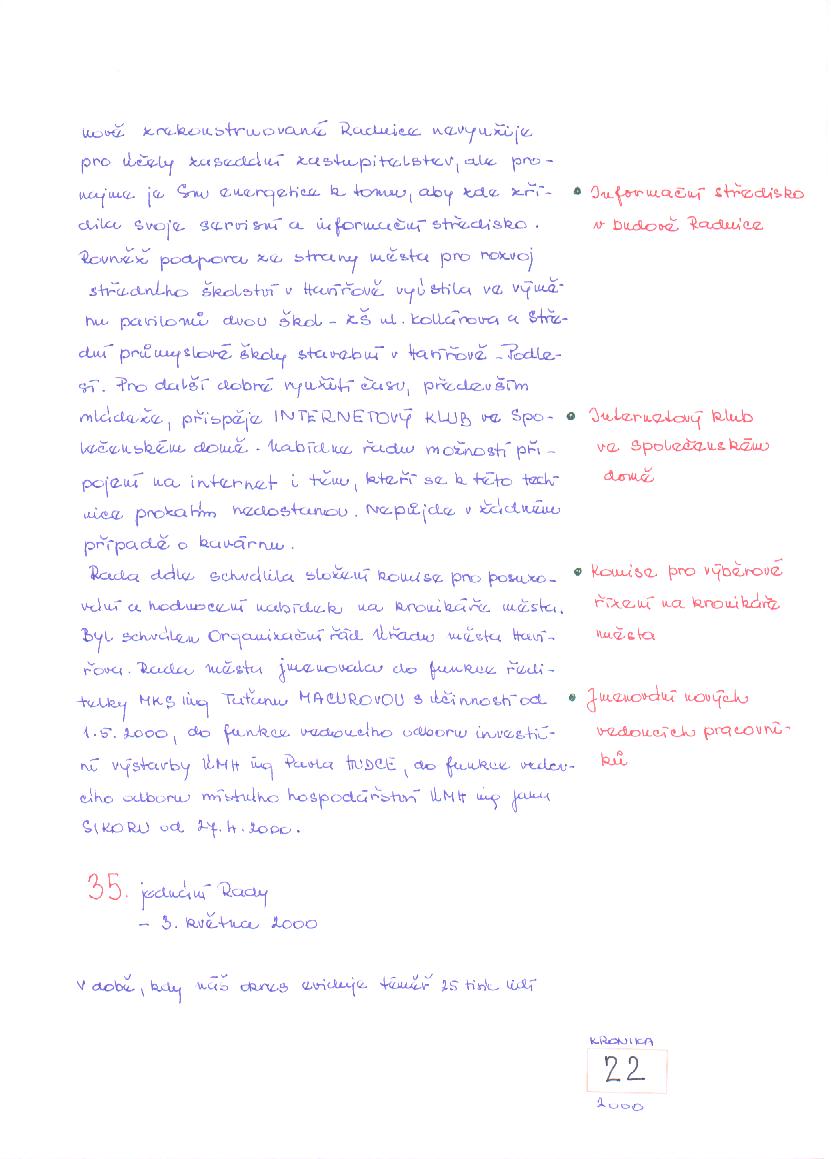 nově zrekonstruované Radnice nevyužije
pro účely zasedání zastupitelstev, ale pro-
najme je Sm energetice k tomu, aby zde zří-
dila svoje servisní a informační středisko.
• Informační středisko
v budově Radnice
Rovněž podpora ze strany města pro rozvoj
středního školství v Havířově vyústila ve výmě-
nu pavilonů dvou škol - ZŠ ul. Kollárova a Stře-
dní průmyslové školy stavební v Havířově - Podle-
sí. Pro další dobré využití času, především
mládeže, přispěje INTERNETOVÝ KLUB ve Spo-
lečenském domě. Nabídne řadu možností při-
pojení na internet i těm, kteří se k této tech-
nice prozatím nedostanou. Nepůjde v žádném
případě o kavárnu.
• Internetový klub
ve Společenském
domě
Rada dále schválila složení komise pro posuzo-
vání a hodnocení nabídek na kronikáře města.
Byl schválen Organizační řád Úřadu města Haví-
řova. Rada města jmenovala do funkce ředi-
telky MKS ing Taťánu MACUROVOU s účinností od
1.5. 2000, do funkce vedoucího odboru investi-
ní výstavby ÚMH ing Pavla HUDCE, do funkce vedou-
cího odboru místního hospodářství ÚMH ing Janu
SIKORU od 27.4.2000.
• Komise pro výběrové
řízení na kronikáře
města
• Jmenování nových
vedoucích pracovní-
ků
35. jednání Rady
- 3. května 2000
V době, kdy náš okres eviduje téměř 25 tisíc lidí
KRONIKA
22
2000